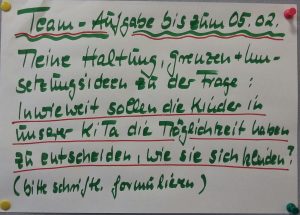 Team-Aufgabe bis zum 05.02.
Meine Haltung, grenzen + Um-
setzungsideen zu der Frage:
Inwieweit sollen die Kinder in
unserer KiTa die Möglichkeit haben
zu entscheiden, wie sie sich kleiden?
(bitte schriftl. formulieren)